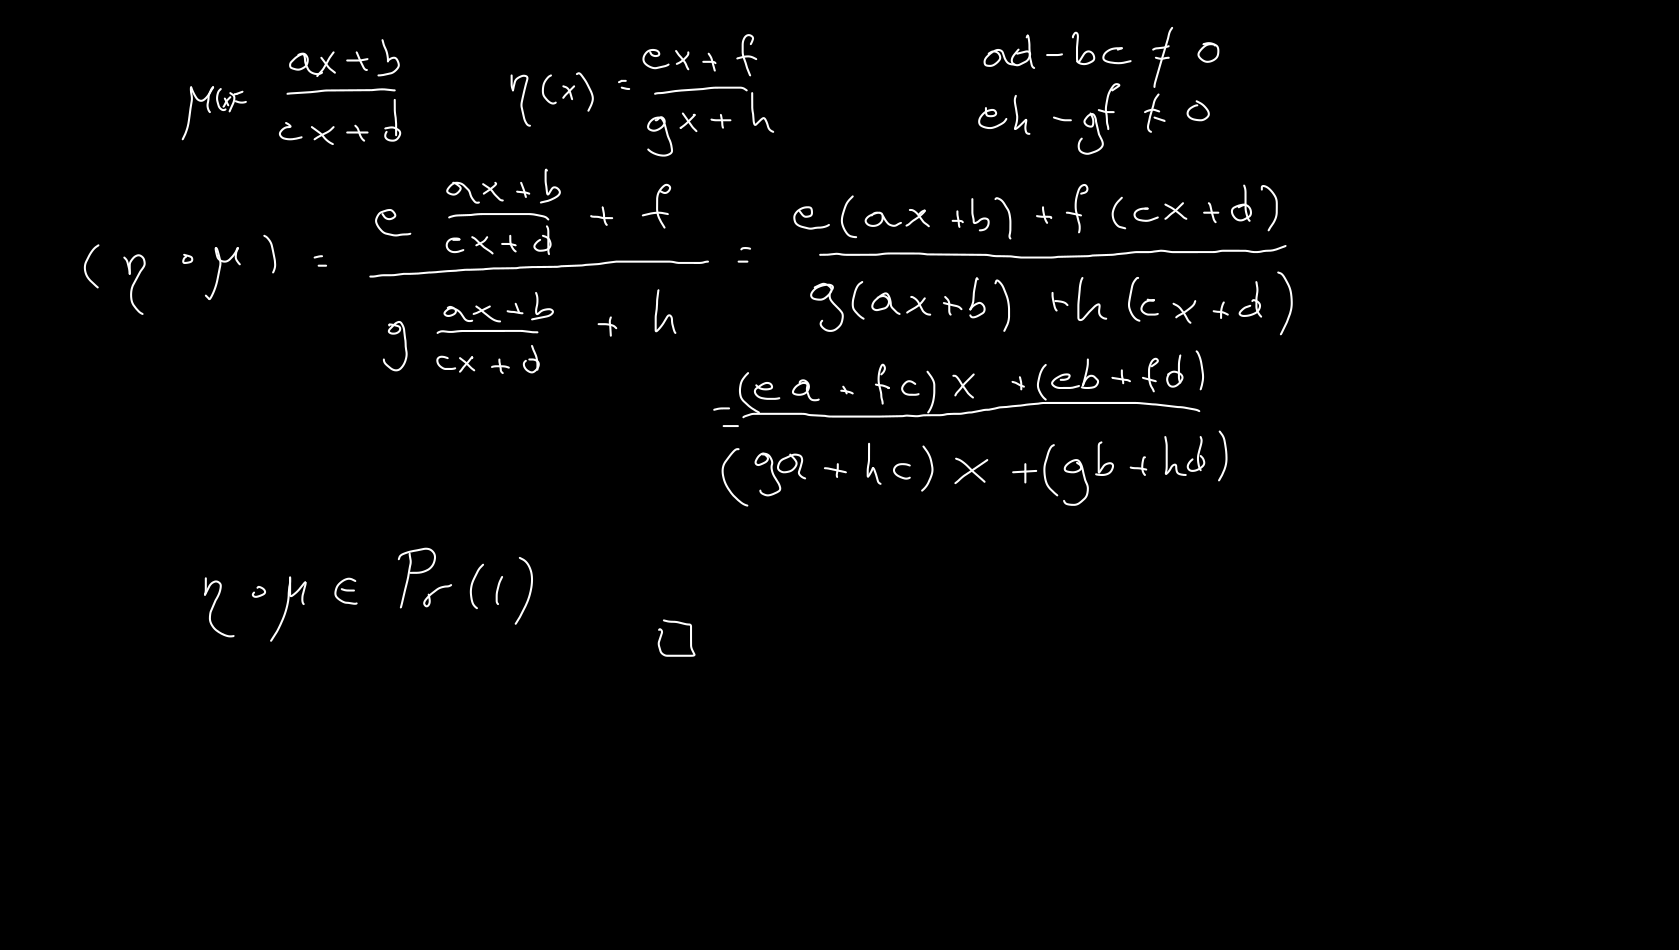 μ(x)= \frac{ax+b}{cx+d} η(x) = \frac{ex+f}{gx+h} ad-bc ≠ 0
eh-gf ≠ 0
(η∘μ) = \frac{e \frac{ax+b}{cx+d} + f}{g \frac{ax+b}{cx+d} + h} = \frac{e(ax+b)+f(cx+d)}{g(ax+b)+h(cx+d)}
= \frac{(ea+fc)x+(eb+fd)}{(ga+hc)x+(gb+hd)}
η∘μ ∈ Pr(1) □